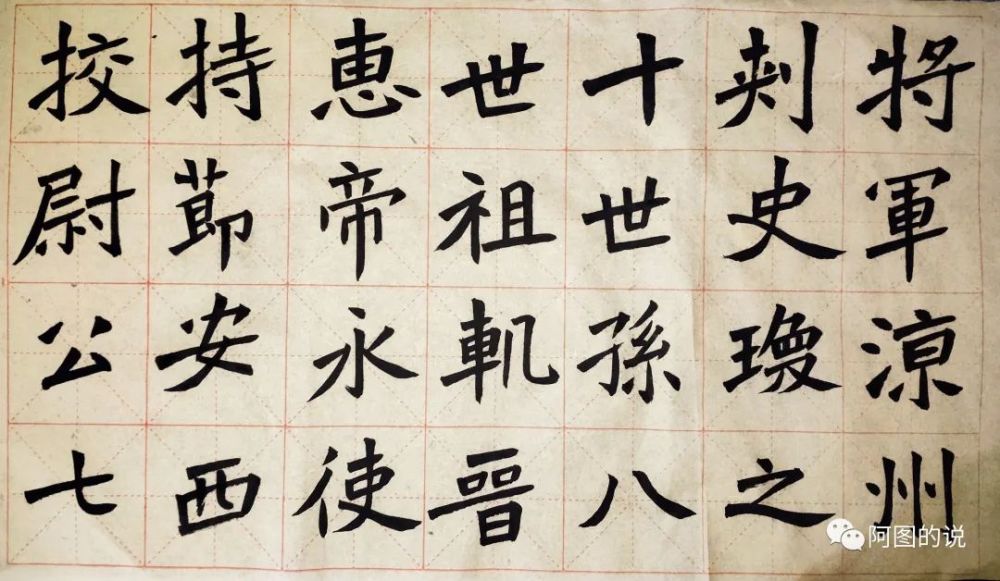 將軍涼州
刾史瓊之
十世孫八
世祖軌晉
恵帝永使
持莭安西
挍尉公七
阿图的说